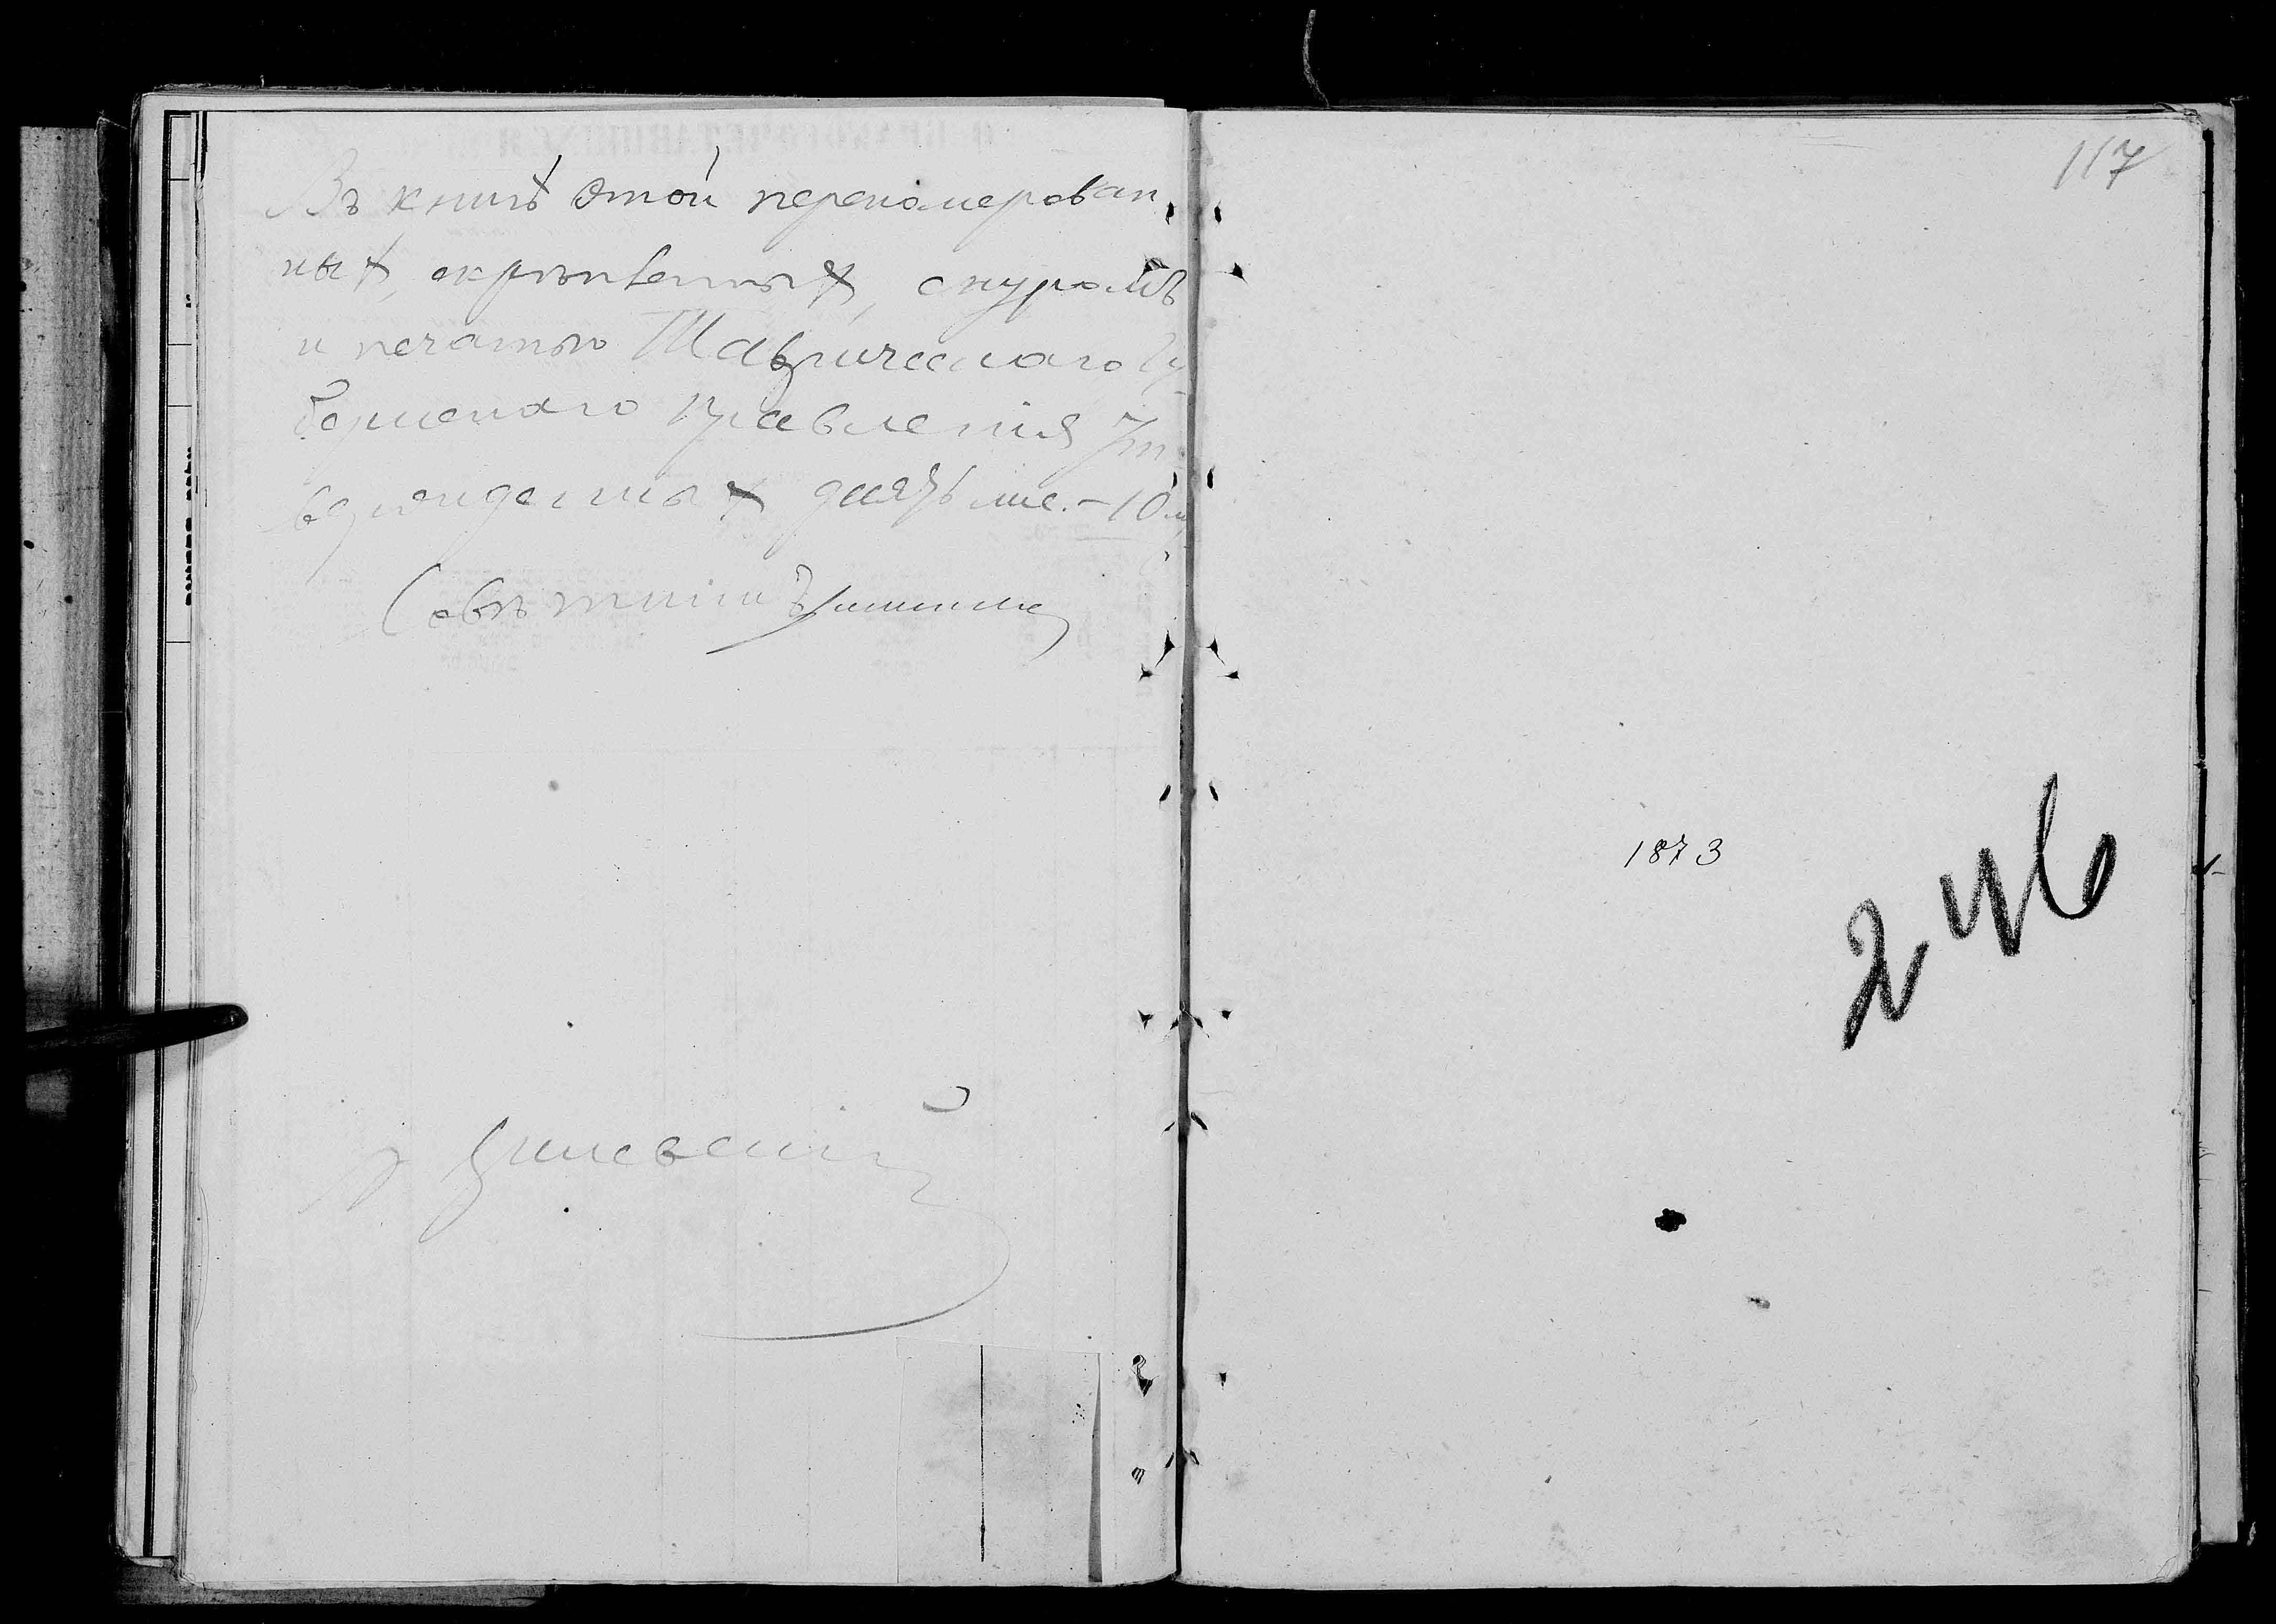 Въ книгѣ этой перенумерован
ныхъ, скрѣпленныхъ, снуромъ
и печатью Таврическаго Гу
бернскаго Правления Ут
вержденныхъ десять лис. – 10 л
Совѣтникъ
117
1873
246